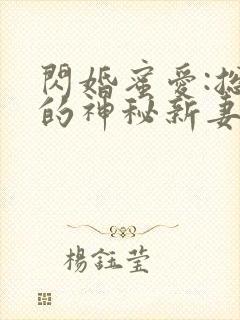 閃婚蜜愛:
的神秘新妻
楊鈺瑩